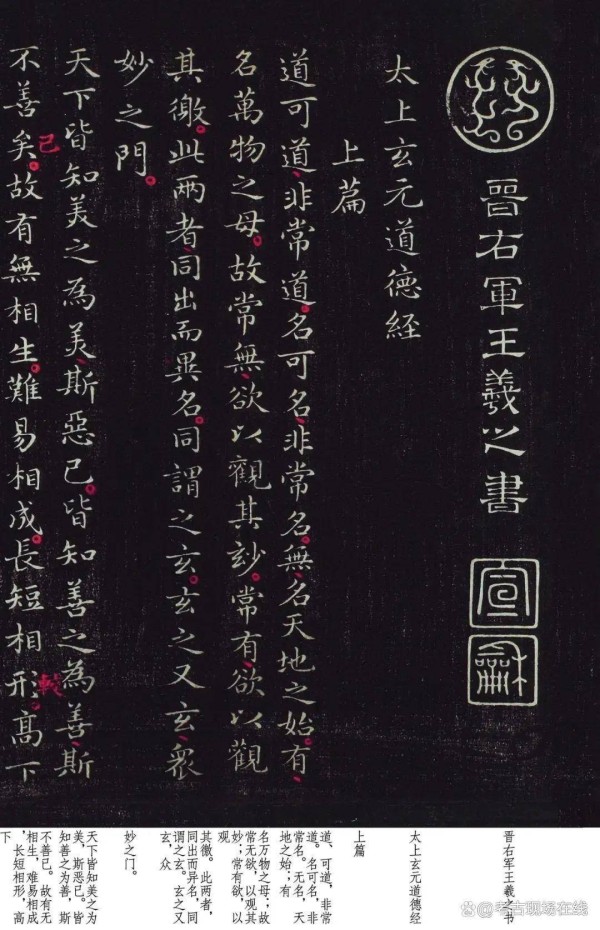 晉右軍王羲之書
宣
龢
太上玄元道德經
上篇
道可道非常道名可名非常名無名天地之始有
名萬物之母故常無欲以觀其妙常有欲以觀
其徼此兩者同出而異名同謂之玄玄之又玄衆
妙之門
天下皆知美之為美斯惡已皆知善之為善斯
不善矣故有無相生難易相成長短相形高下
已
較
晋右军王羲之书
太上玄元道德经
上篇
道、可道，非常
道。名可名，非
常名。无名，天
地之始；有
名万物之母；故
常无欲，以观其
妙；常有欲，以
观
其徼。此两者，
同出而异名，同
谓之玄。玄之又
玄，众
妙之门。
天下皆知美之为
美，斯恶已。皆
知善之为善，斯
不善已。故有无
相生，难易相成
，长短相形，高
下
考古现场在线